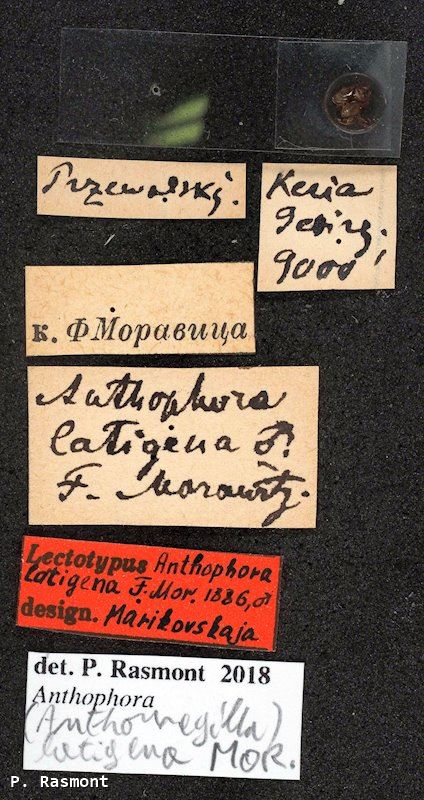 Przewalski.
Keria
Gebirg.
9000'
к. Ф Моравица
Anthophora
latigena ♂.
F. Morawitz.
Lectotypus Anthophora
latigena F. Mor. 1886, ♂
design. Marikovskaja
det. P. Rasmont 2018
Anthophora
(Anthomegilla)
latigena MOR.
P. Rasmont